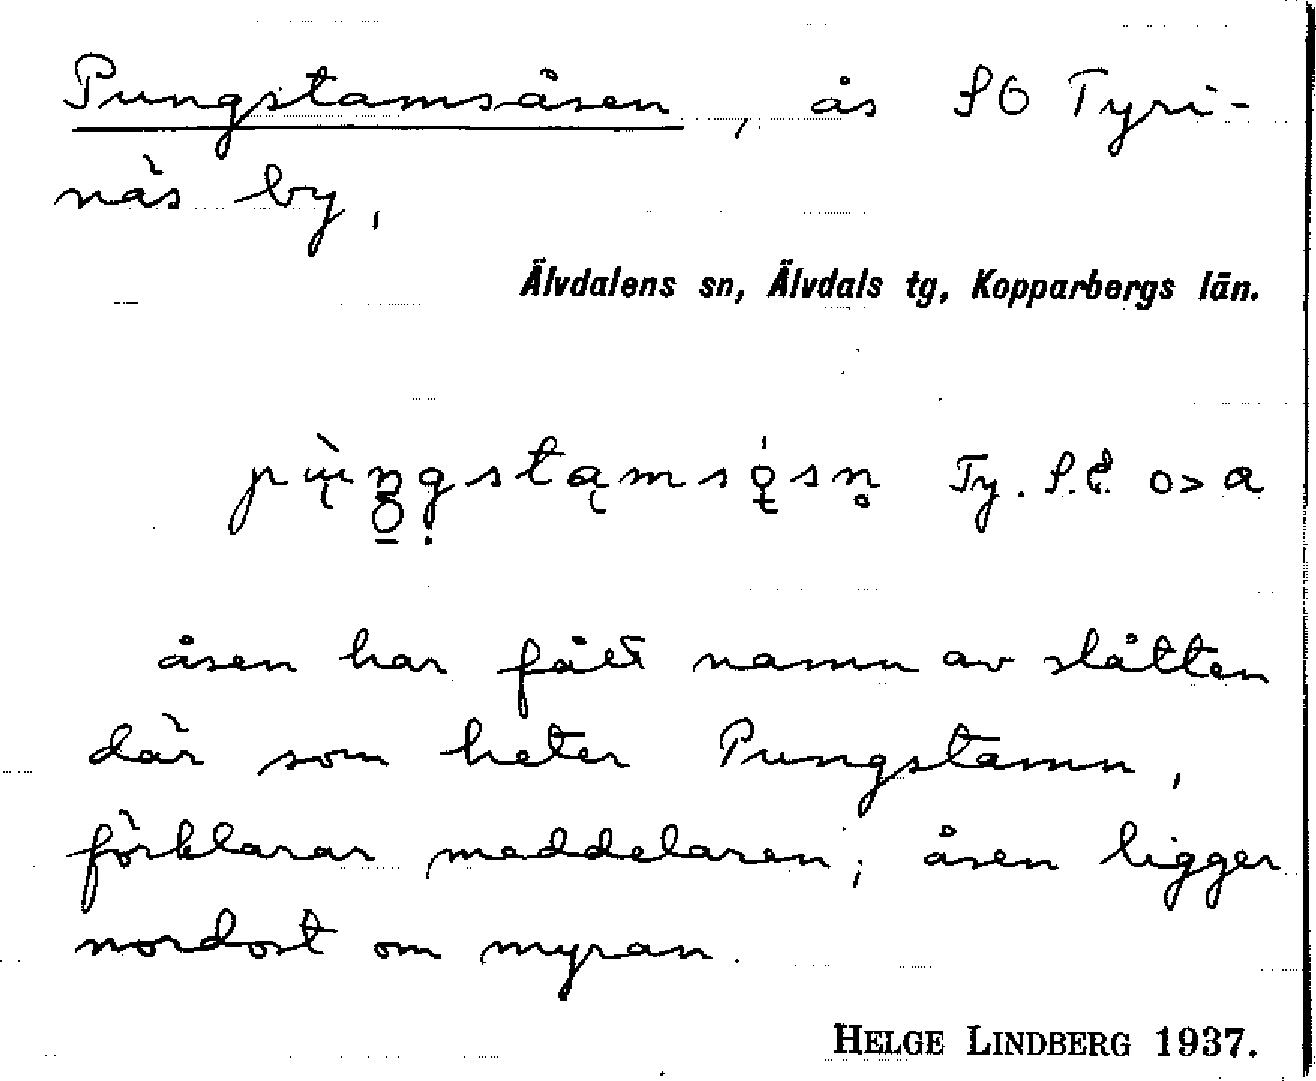 Pungstamsåsen, ås SO Tyri-
näs by,
Älvdalens sn, Älvdals tg, Kopparbergs län.
Ty. S.E. o > a
åsen har fått namn av slåtten
där som heter Pungstamn,
förklarar meddelaren; åsen ligger
nordost om myran.
HELGE LINDBERG 1937.